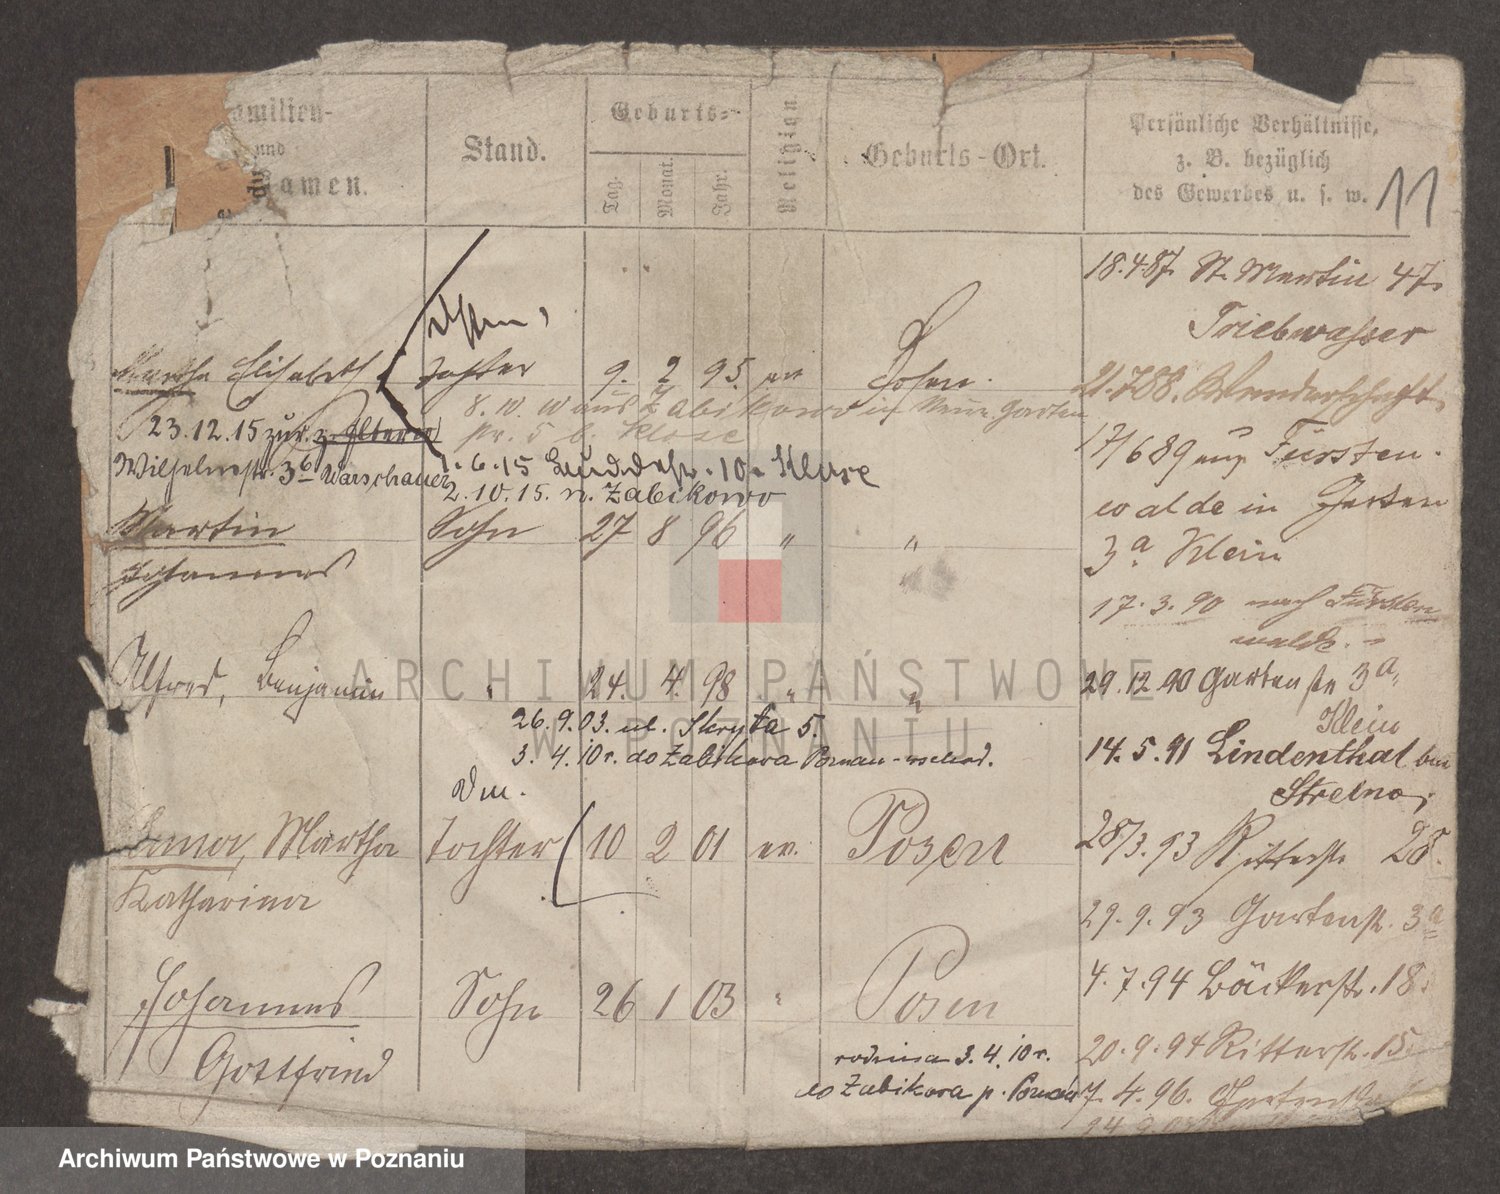 Familien-
und
amen.
Stand.
Geburts-
Tag.
Monat.
Jahr.
Religion
Geburts-Ort.
Persönliche Verhältnisse,
z. B. bezüglich
des Gewerbes u. s. w.
11
Martha Elisabeth Tochter 9. 2 95. ev Posen.
8. 10. 10 aus Zabikowo in Neue Garten
23.12.15 zur z. Eltern
str. 5 b. Klose
Wilhelmstr. 36 Warschauer
1.6.15 10. Klose
2.10.15. n. Zabikowo
Martin Sohn 27 8 96 " "
Johannes
Alfred, Benjamin " 24. 4. 98 " "
26.9.03. ul. Skryta 5.
3.4.10 r. do Zabikowa Poznań-wschod.
Martha Tochter 10 2 01 ev. Posen
Katharina
Johannes Sohn 26 1 03 " Posen
Gottfried
rodzina 3.4.10 r.
do Zabikowa p. Poznań
18.4.87. St. Martin 47.
Triebwasser
21.7.88. Wanderschaft.
17/6 89 aus Fürsten-
walde in Garten
3a Klein
17.3.90 nach Fürsten
walde.
29.12.90 Gartenstr 3a,
Klein
14.5.91 Lindenthal bei
Strelno,
28/3.93 Ritterstr 28.
29.9.93 Gartenstr. 3a
4.7.94 Bäckerstr. 18.
20.9.94 Ritterstr. 15
7.4.96.
ARCHIWUM PAŃSTWOWE
W POZNANIU
Archiwum Państwowe w Poznaniu